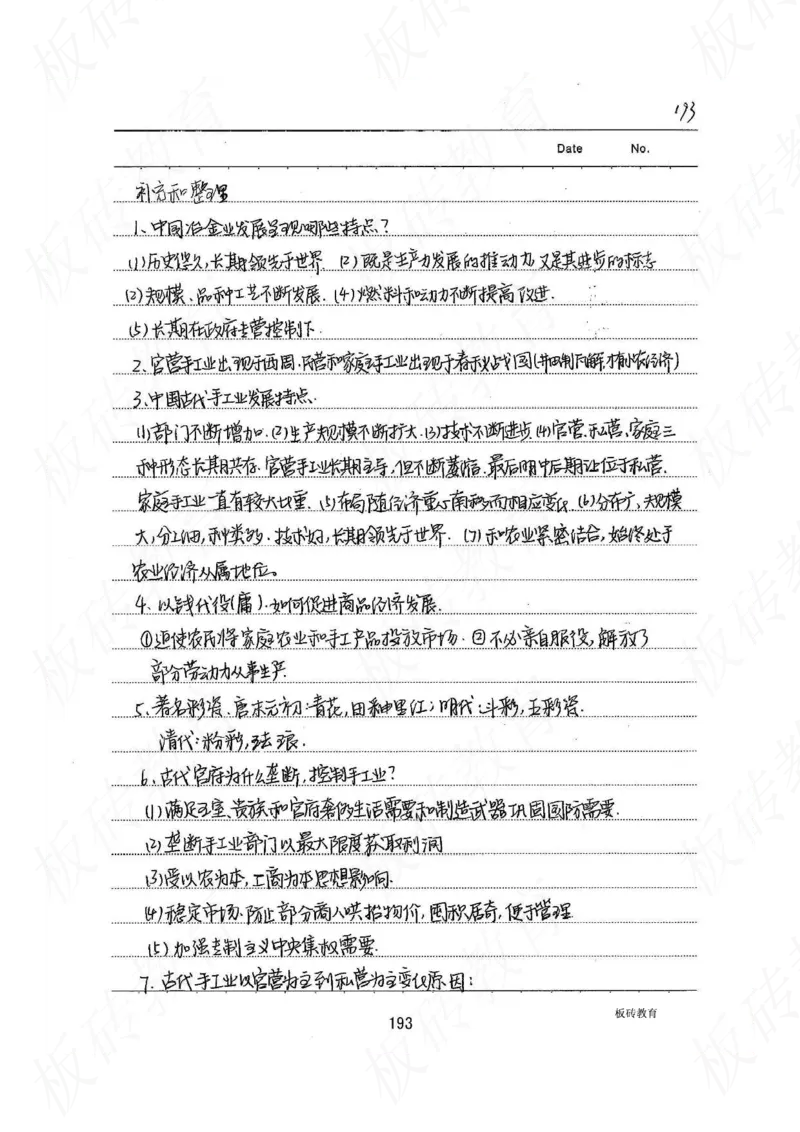 193
Date No.
补充和整理
1、中国冶金业发展呈现哪些特点?
(1)历史悠久,长期领先于世界 (2)既是生产力发展的推动力又是其进步的标志
(2)规模、品种工艺不断发展. (4)燃料和动力不断提高改进.
(5)长期在政府专营控制下.
2、官营手工业出现于西周.民营和家庭手工业出现于春秋战国(井田制瓦解,才有小农经济)
3、中国古代手工业发展特点.
(1)部门不断增加.(2)生产规模不断扩大.(3)技术不断进步(4)官营、私营、家庭三
种形态长期共存.官营手工业长期主导,但不断萎缩.最后明中后期让位于私营.
家庭手工业一直有较大比重. (5)布局随经济重心南移而相应变化 (6)分布广,规模
大,分工细,种类多.技术好,长期领先于世界. (7)和农业紧密结合,始终处于
农业经济从属地位。
4、以钱代役(庸).如何促进商品经济发展.
①迫使农民将家庭农业和手工产品投放市场. ②不必亲自服役,解放了
部分劳动力从事生产.
5、著名彩瓷、唐末元初:青花,田种里红;明代:斗彩,五彩瓷.
清代:粉彩,珐琅.
6、古代官府为什么垄断,控制手工业?
(1)满足王室、贵族和官府奢侈生活需要和制造武器巩固国防需要.
(2)垄断手工业部门以最大限度获取利润
(3)受以农为本,工商为本思想影响.
(4)稳定市场.防止部分商人哄抬物价,囤积居奇,便于管理
(5)加强专制主义中央集权需要.
7.古代手工业以官营为主到私营为主变化原因:
193
板砖教育